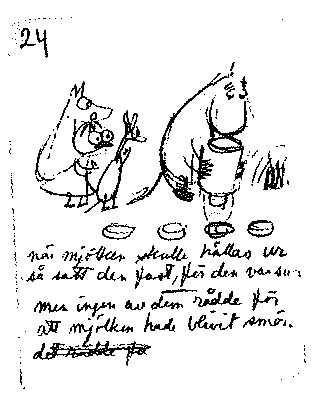 24
när mjölken skulle hällas ur
så satt den fast, för den var su-
men ingen av dem rådde för
att mjölken hade blivit smör.
det rådde fö